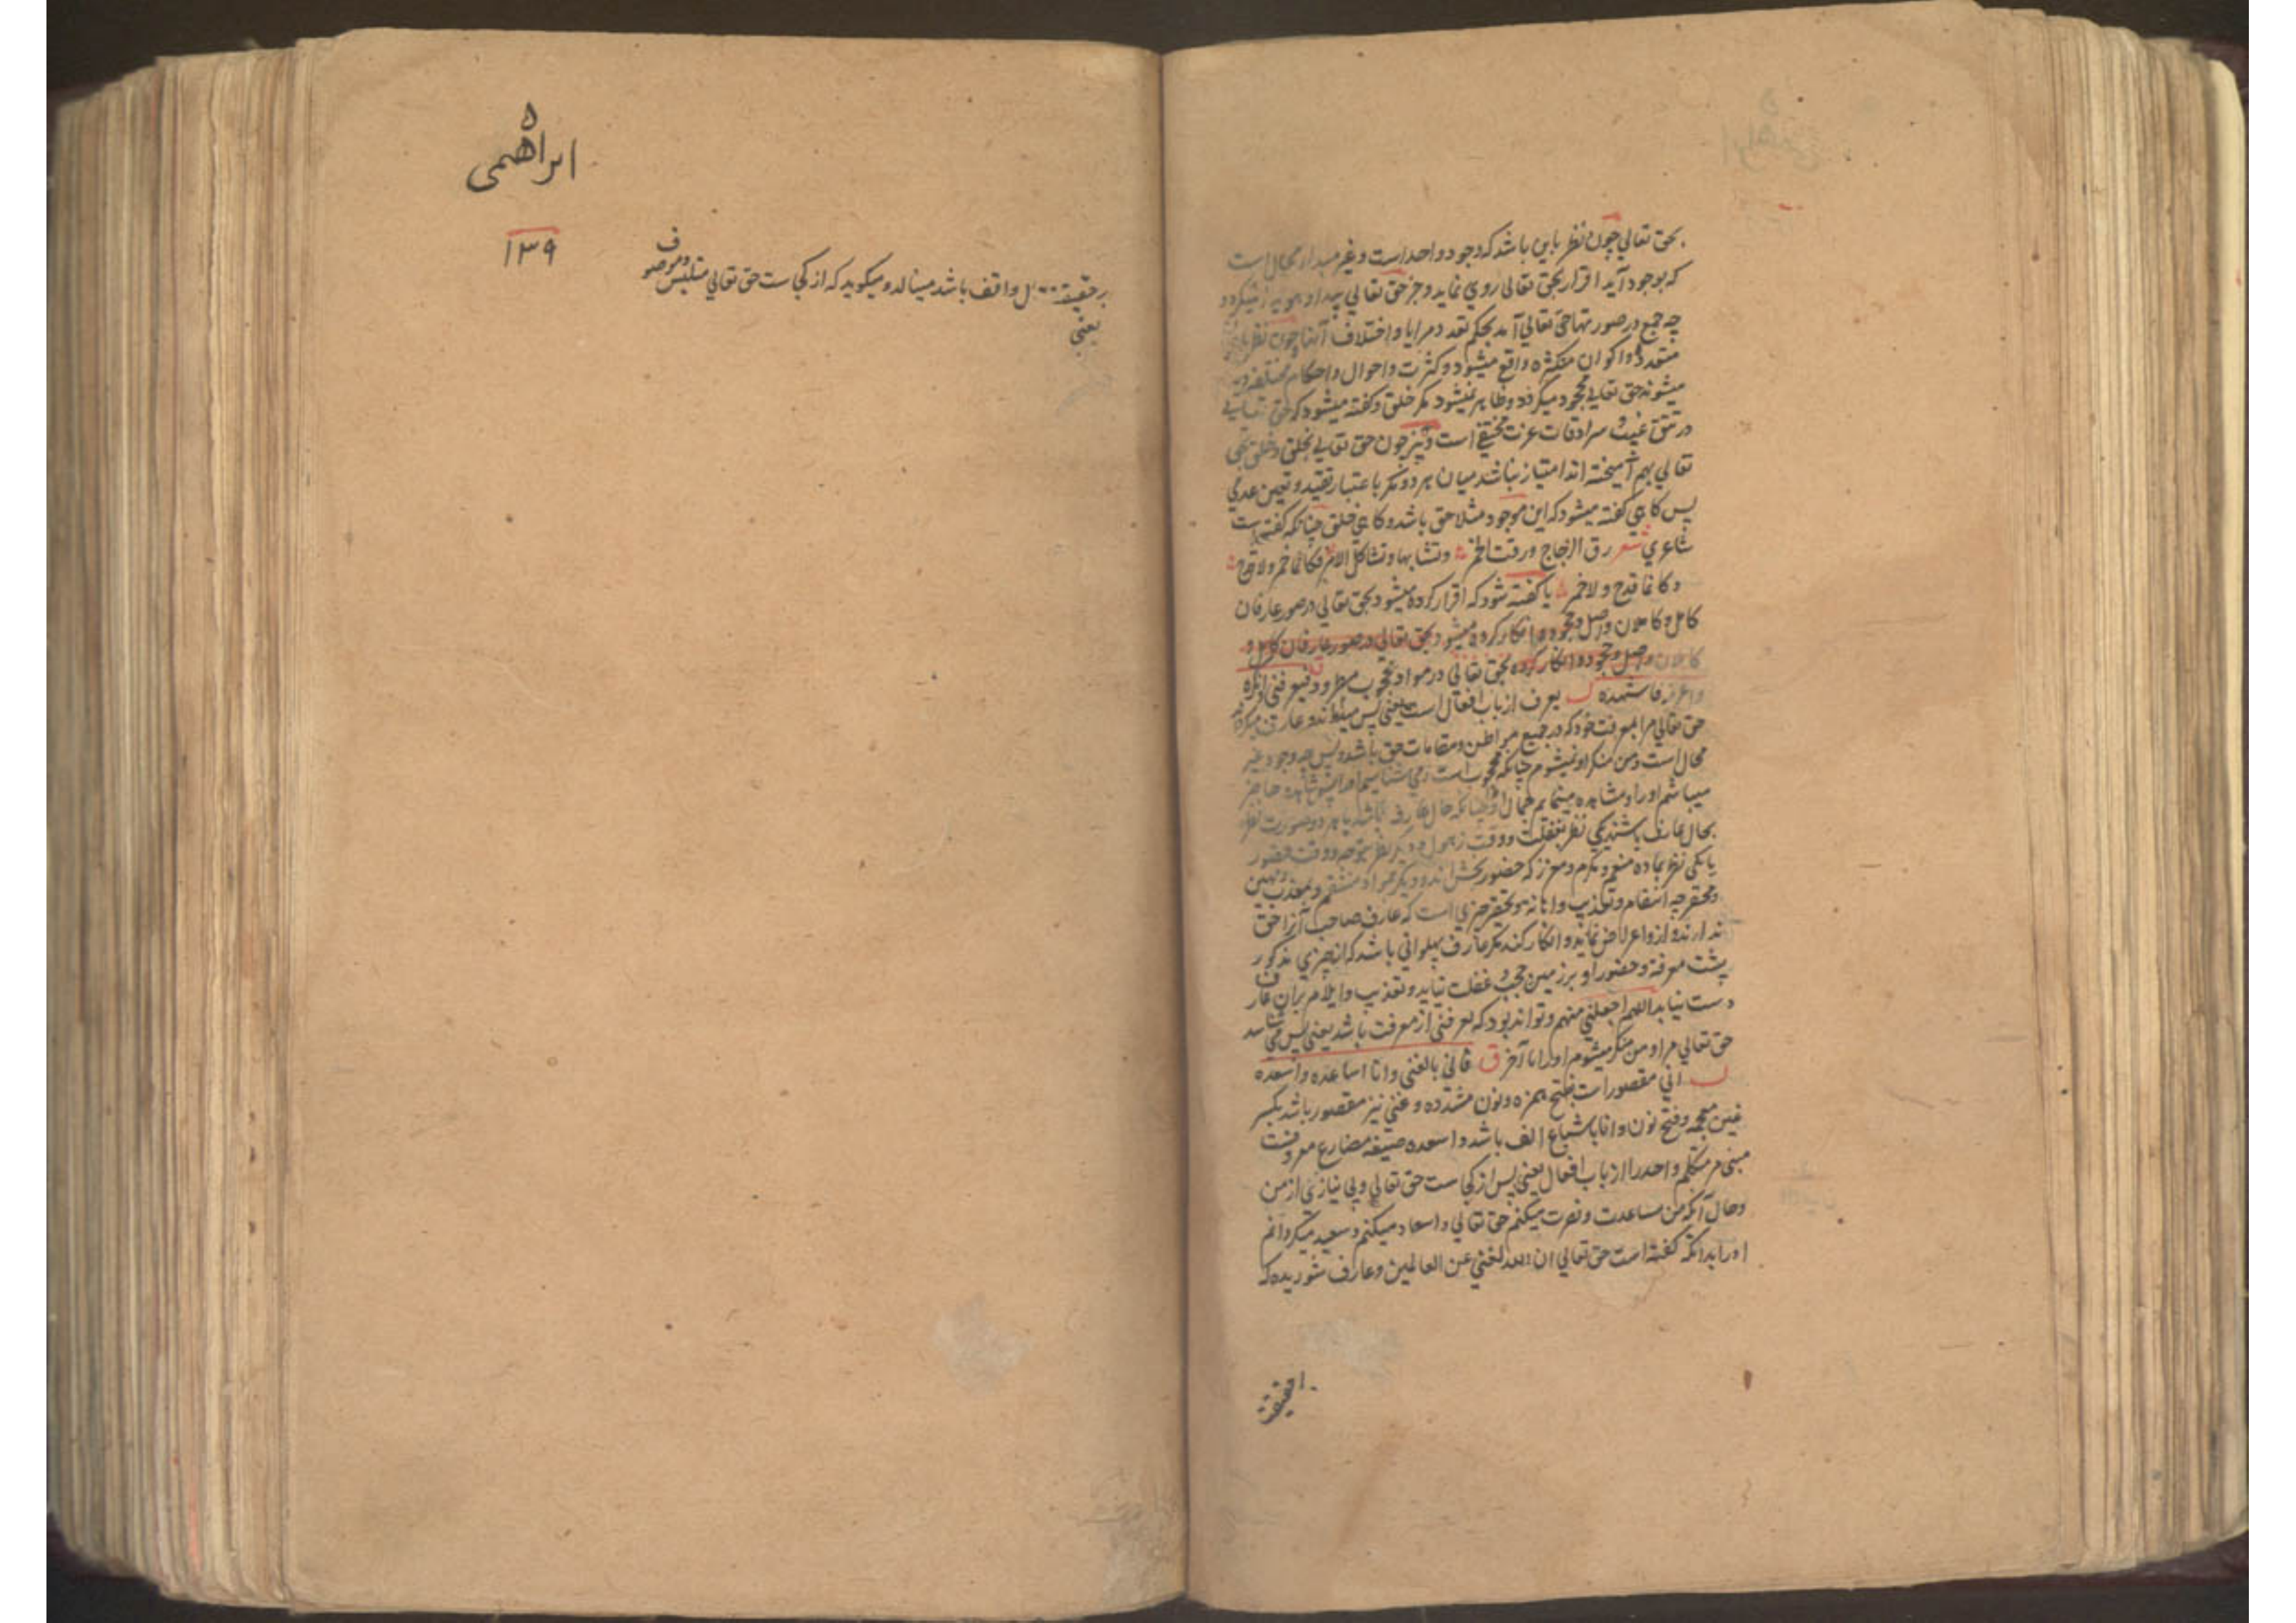 بحق تعالی چون نظر باین باشد که وجود واحد است و غیر مبداء محال است
که بوجود آید اقرار بحق تعالی روی نماید و جز حق تعالی پیدا و هویدا نیکردد
چه جمع در صورتها حق تعالی آمد بحکم تعدد مرایا و اختلاف آنها چون نظر
متعدده و اکوان متکثره واقع میشود و کثرت و احوال و احکام مختلفه
میشوند حق تعالی محجود میکردد و ظاهر نمیشود مکر خلق و کفته میشود که حق تعالی
در تتق غیب سرادقات عزت مختفی است و نیز چون حق تعالی بخلق و خلق بحق
تعالی بهم آمیخته اند امتیاز نباشد میان هر دو مکر باعتبار تقید و تعین عدمی
پس کاهی کفته میشود که این موجود مثلا حق باشد و کاهی خلق چنانکه کفته است
شاعری شعر رق الزجاج ورقت الخمر وتشابها وتشاکل الامر فکانما خمر ولا قدح
وکانما قدح ولا خمر یا کفته شود که اقرار کرده میشود بحق تعالی در صور عارفان
کامل و کاملان واصل و جحود و انکار کرده میشود بحق تعالی در صور عارفان کامل و
کاملان واصل و جحود و انکار کرده بحق تعالی در مواد محجوب فیعرفنی وانکره
واعرفه فاشهده یعرف از باب افعال است یعنی پس میداند و عارف میکرداند
حق تعالی مرا بمعرفت خود که در جمیع مواطن و مقامات حق باشد و بس چه وجود غیر
محال است و من منکر او نمیشوم چنانکه محجوب است و می شناسم او را پس شاهد و حاضر
میباشم او را و مشاهده مینمایم جمال او چنانکه حال عارف باشد یا هر دو صورت نظر
بحال عارف باشند یکی نظر بغفلت و وقت ذهول و دیکر نظر بتوجه و وقت حضور
یا یکی نظر بماده منعم و مکرم و معزز که حضور بخش اند و دیکر بمواد منتقم و معذب و مهین
و محقر چه انتقام و تعذیب و اهانه و تحقیر چیزی است که عارف صاحب آنرا حق
ندارند و ازو اعراض نماید و انکار کند مکر عارف پهلوانی باشد که از چیزی مذکور
پشت معرفة و حضور او بر زمین حجب و غفلت نیاید و تعذیب و ایلام بران عارف
دست نیابد اللهم اجعلنی منهم و تواند بود که یعرفنی از معرفت باشد یعنی پس می شناسد
حق تعالی مرا و من منکر میشوم او را تا آخر ق فانی بالغنی وانا اساعده واسعده
انی مقصور است بفتح همزه و نون مشدده و غنی نیز مقصور باشد بکسر
غین معجمه و فتح نون و انا باشباع الف باشد و اسعده صیغه مضارع معروفست
مبنی مر متکلم واحد را از باب افعال یعنی پس از کجاست حق تعالی و بی نیازی از من
و حال آنکه من مساعدت و نصرت میکنم حق تعالی و اسعاد میکنم و سعید میکردانم
او را بدانکه کفته است حق تعالی ان الله لغنی عن العالمین و عارف شوریده که
ابراهمی
۱۳۹
بر حقیقة واقف باشد مینالد و میکوید که از کجاست حق تعالی متلبس و موصوف
یعنی